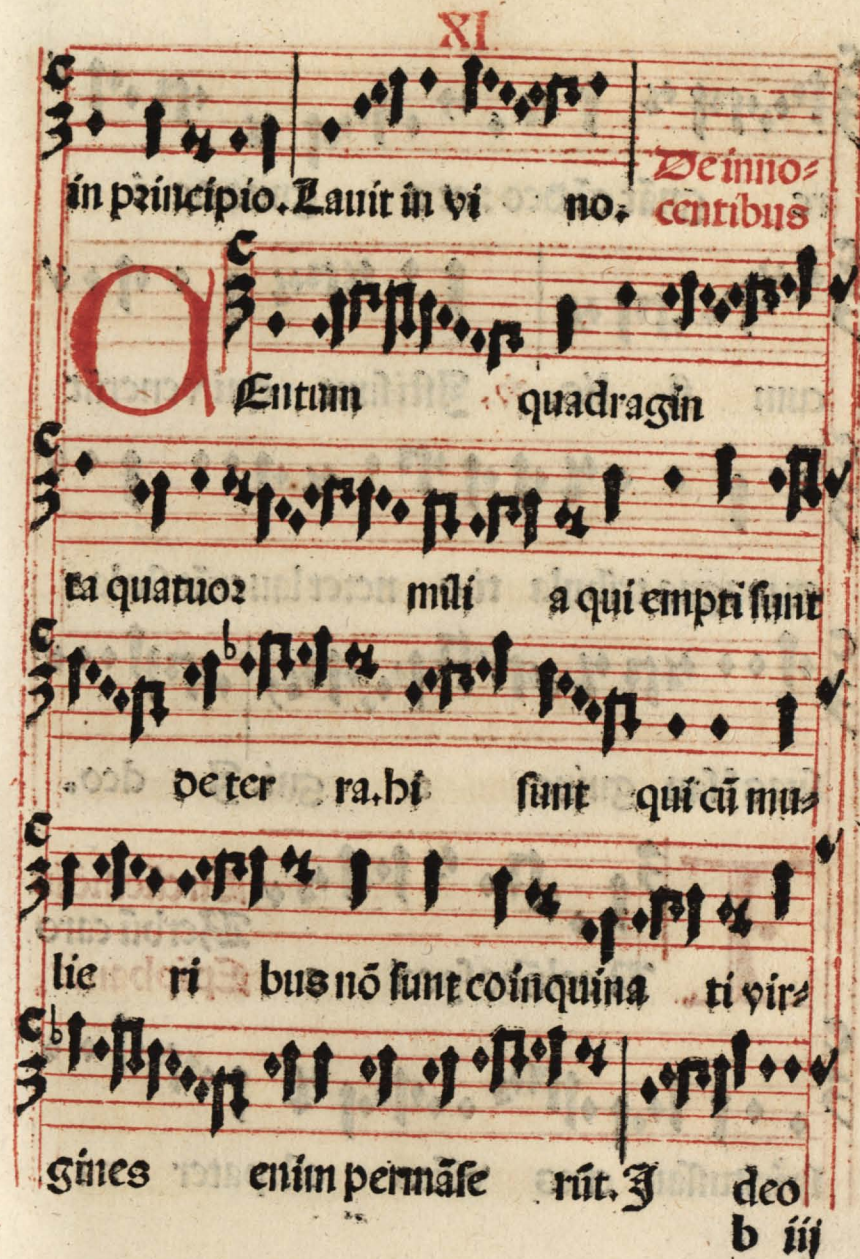 XI
in principio. Lauit in vi no.
De inno⸗
centibus
CEntum quadragin
ta quatuor mili a qui empti sunt
de ter ra. hi sunt qui cū mu⸗
lie ri bus nō sunt coinquina ti vir⸗
gines enim permāse rūt. I deo
b iij